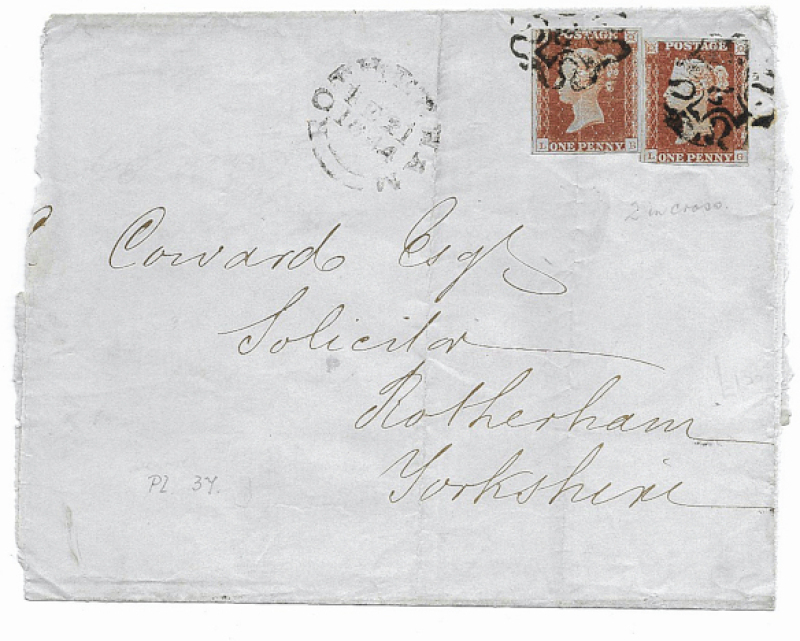 POSTAGE
ONE PENNY
L B
POSTAGE
ONE PENNY
L G
ROTHERHAM
2 in cross.
Coward Esqr
Solicitor
Rotherham
Yorkshire
Pl 37.